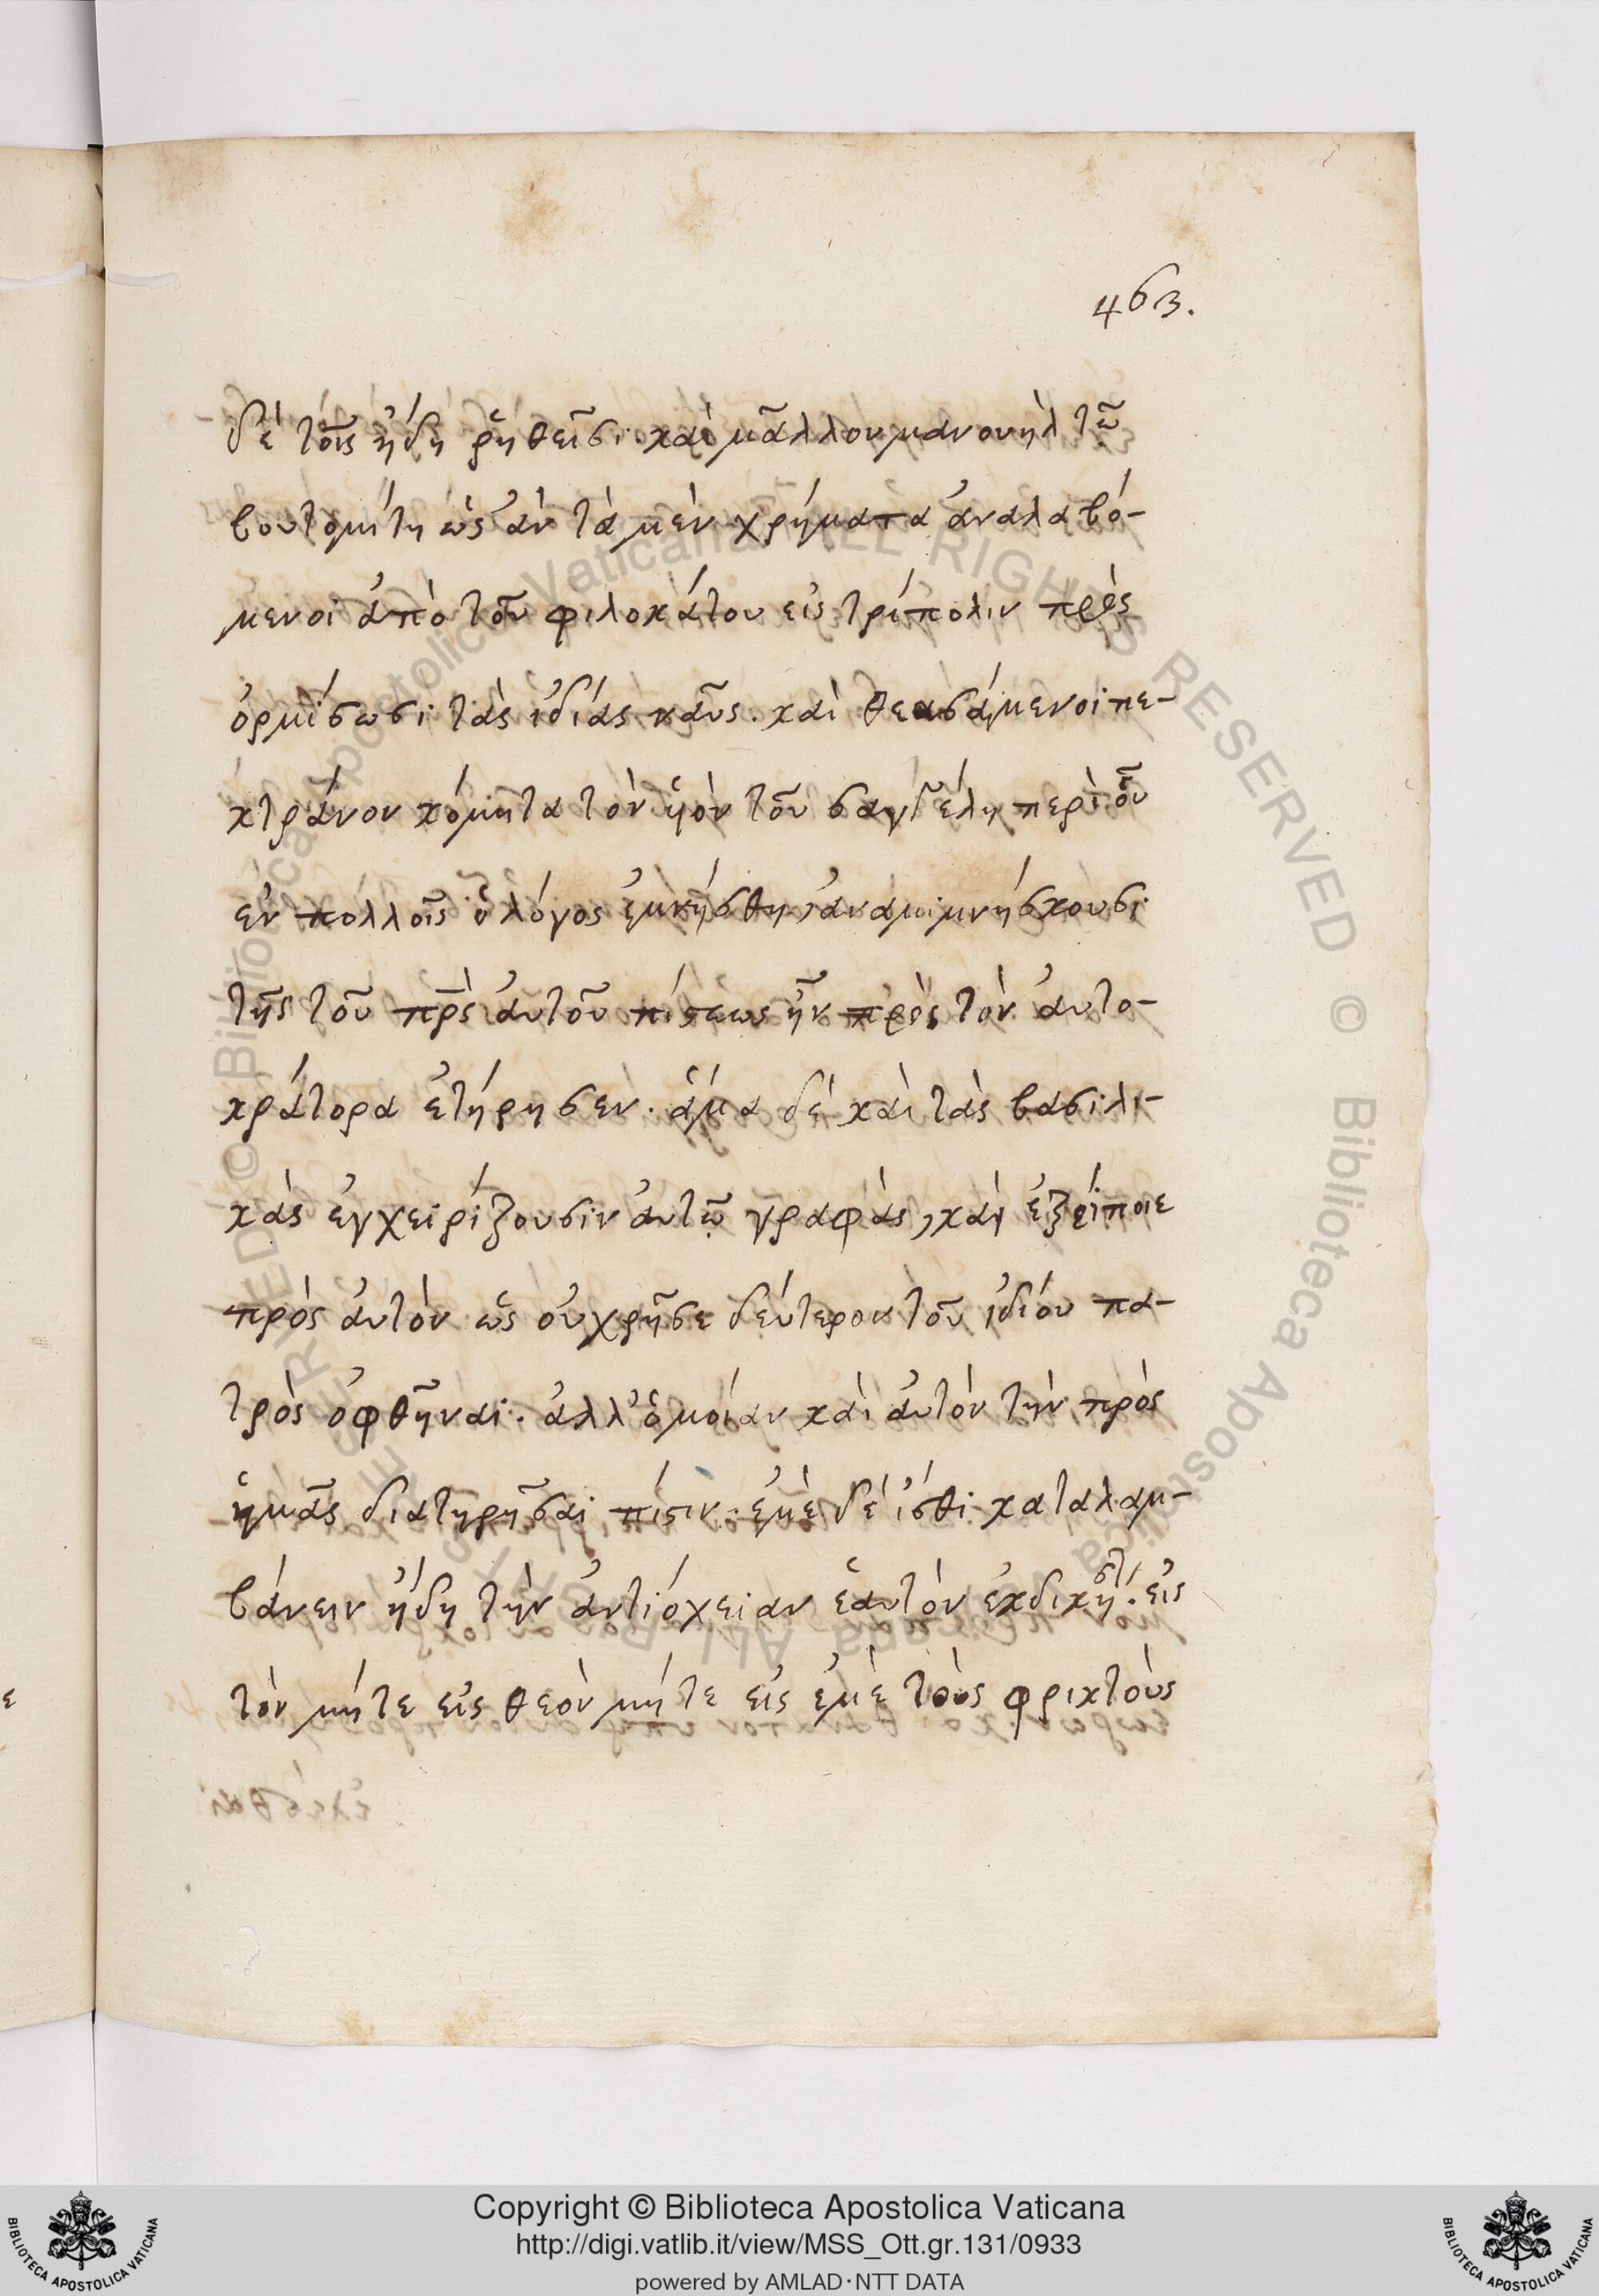 463.
δὲ τοῖς ἤδη ῥηθεῖσι· καὶ μᾶλλον μανουὴλ τῶ
βουτομίτη ὡς ἂν τὰ μὲν χρήματα ἀναλαβό-
μενοι ἀπὸ τοῦ φιλοκάτου εἰς τρίπολιν πρὸς
ὁρμίσωσι τὰς ἰδίας ναῦς. καὶ θεασάμενοι πε-
κτράνον κόμητα τὸν ὑὸν τοῦ σαγγέλη περὶ οὗ
ἐν πολλοῖς ὁ λόγος ἐμνήσθη, ἀναμιμνήσκουσι
τῆς τοῦ πρ̅ς αὐτοῦ πίστεως ἣν πρὸς τὸν αὐτο-
κράτορα ἐτήρησεν. ἅμα δὲ καὶ τὰς βασιλι-
κὰς ἐγχειρίζουσιν αὐτῷ γραφὰς, καὶ ἐξείποιε
πρὸς αὐτὸν ὡς οὐ χρῆσε δεύτερον τοῦ ἰδίου πα-
τρὸς ὀφθῆναι. ἀλλ' ὁμοίαν καὶ αὐτὸν τὴν πρὸς
ἡμᾶς διατηρῆσαι πίστιν. ἐμὲ δὲ ἴσθι καταλαμ-
βάνειν ἤδη τὴν ἀντιόχειαν ἑαυτὸν ἐκδικῆσ. εἰς
τὸν μήτε εἰς θεὸν μήτε εἰς ἐμὲ τοὺς φρικτοὺς
Copyright © Biblioteca Apostolica Vaticana
http://digi.vatlib.it/view/MSS_Ott.gr.131/0933
powered by AMLAD·NTT DATA
BIBLIOTECA APOSTOLICA VATICANA
BIBLIOTECA APOSTOLICA VATICANA